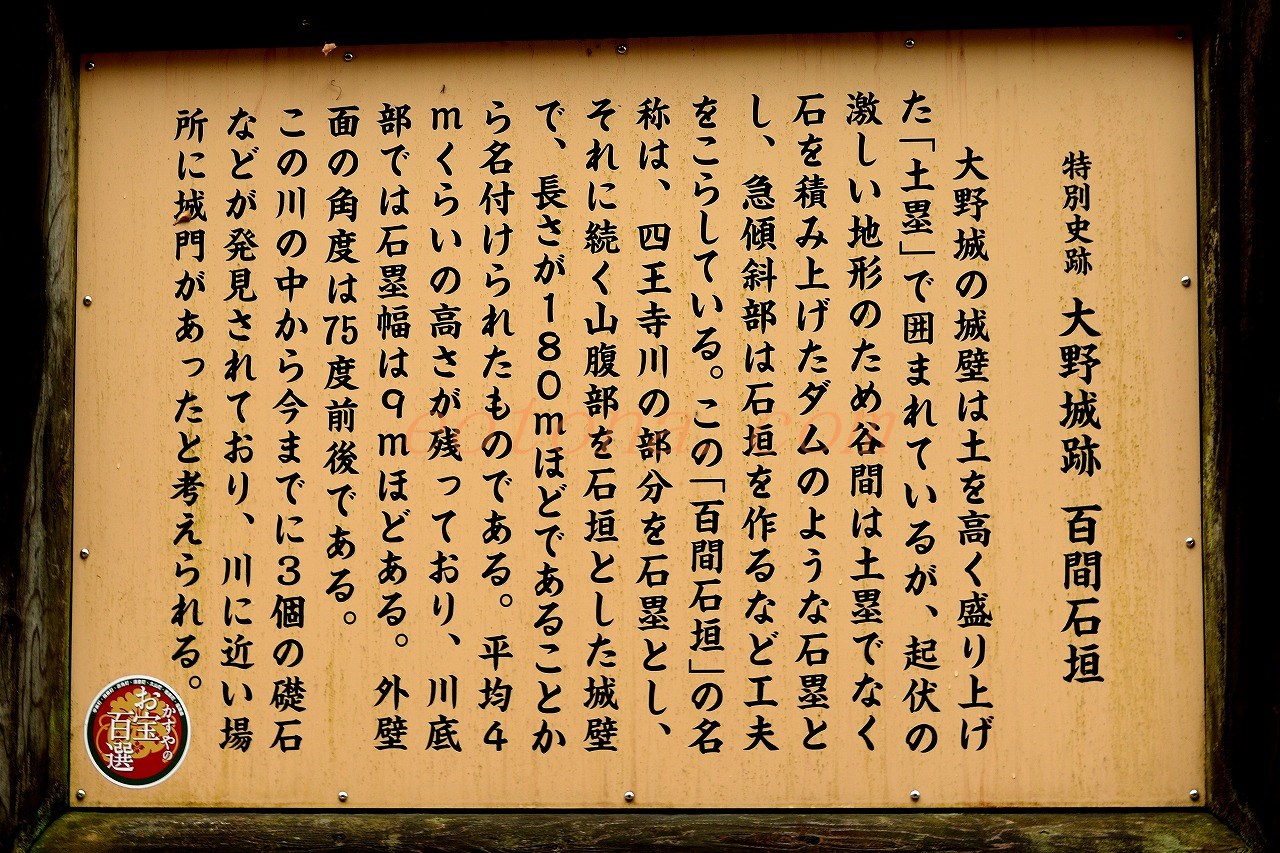 特別史跡 大野城跡 百間石垣
大野城の城壁は土を高く盛り上げ
た「土塁」で囲まれているが、起伏の
激しい地形のため谷間は土塁でなく
石を積み上げたダムのような石塁と
し、急傾斜部は石垣を作るなど工夫
をこらしている。この「百間石垣」の名
称は、四王寺川の部分を石塁とし、
それに続く山腹部を石垣とした城壁
で、長さが180mほどであることか
ら名付けられたものである。平均4
mくらいの高さが残っており、川底
部では石塁幅は9mほどある。外壁
面の角度は75度前後である。
この川の中から今までに3個の礎石
などが発見されており、川に近い場
所に城門があったと考えられる。
かすやの
お宝
百選